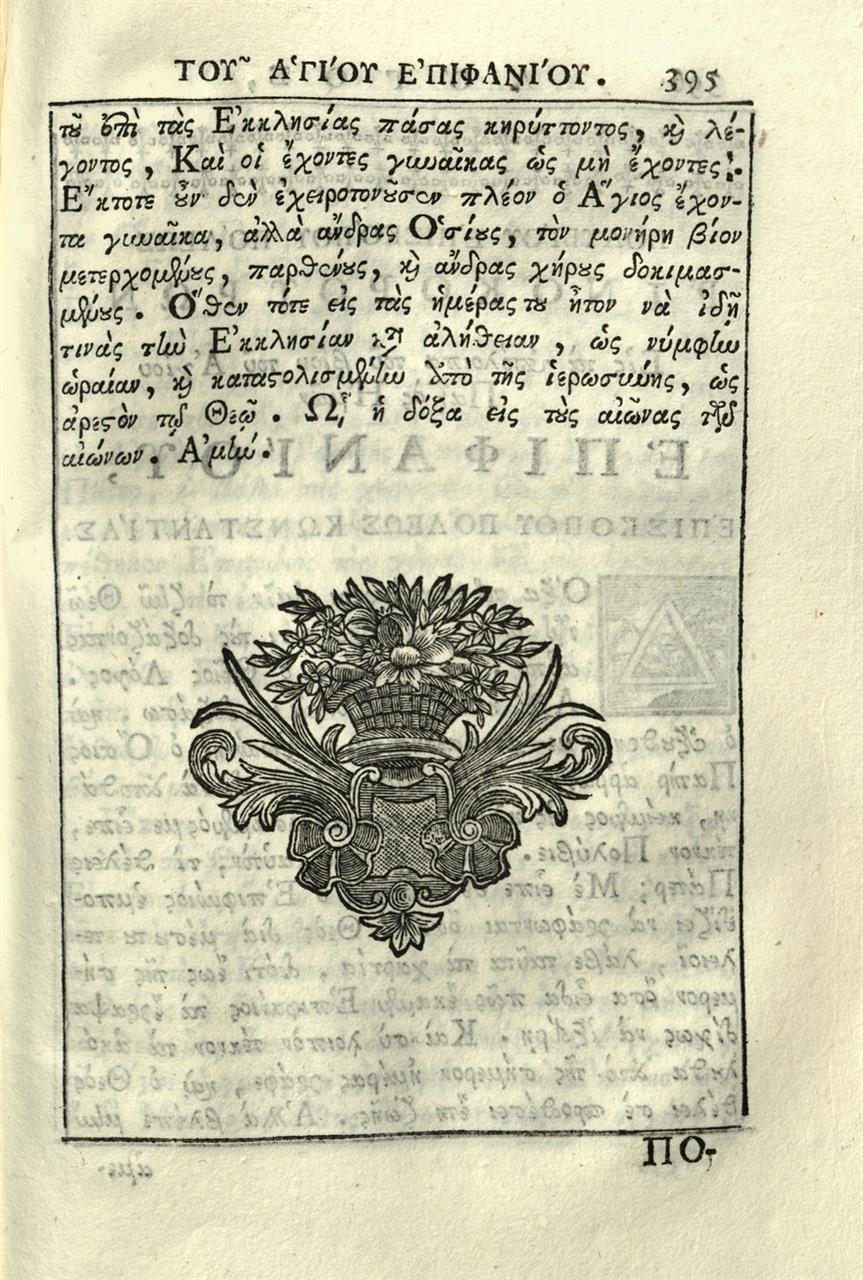 ΤΟΥ͂ ἉΓΊΟΥ ἘΠΙΦΑΝΊΟΥ. 395
τοῦ ἐπὶ τὰς Ἐκκλησίας πάσας κηρύττοντος, καὶ λέ-
γοντος, Καὶ οἱ ἔχοντες γυναῖκας ὡς μὴ ἔχοντες.
Ἔκτοτε οὖν δὲν ἐχειροτονοῦσεν πλέον ὁ Ἅγιος ἔχον-
τα γυναῖκα, ἀλλὰ ἄνδρας Ὁσίους, τὸν μονήρη βίον
μετερχομένους, παρθένους, καὶ ἄνδρας χήρους δοκιμασ-
μένους. Ὅθεν τότε εἰς τὰς ἡμέρας του ἦτον νὰ ἰδῇ
τινὰς τὴν Ἐκκλησίαν κατ' ἀλήθειαν, ὡς νύμφην
ὡραίαν, καὶ καταστολισμένην ὑπὸ τῆς ἱερωσύνης, ὡς
ἀρεστὸν τῷ Θεῷ. Ὧ ἡ δόξα εἰς τοὺς αἰῶνας τῶν
αἰώνων. Ἀμήν.
ΠΟ-